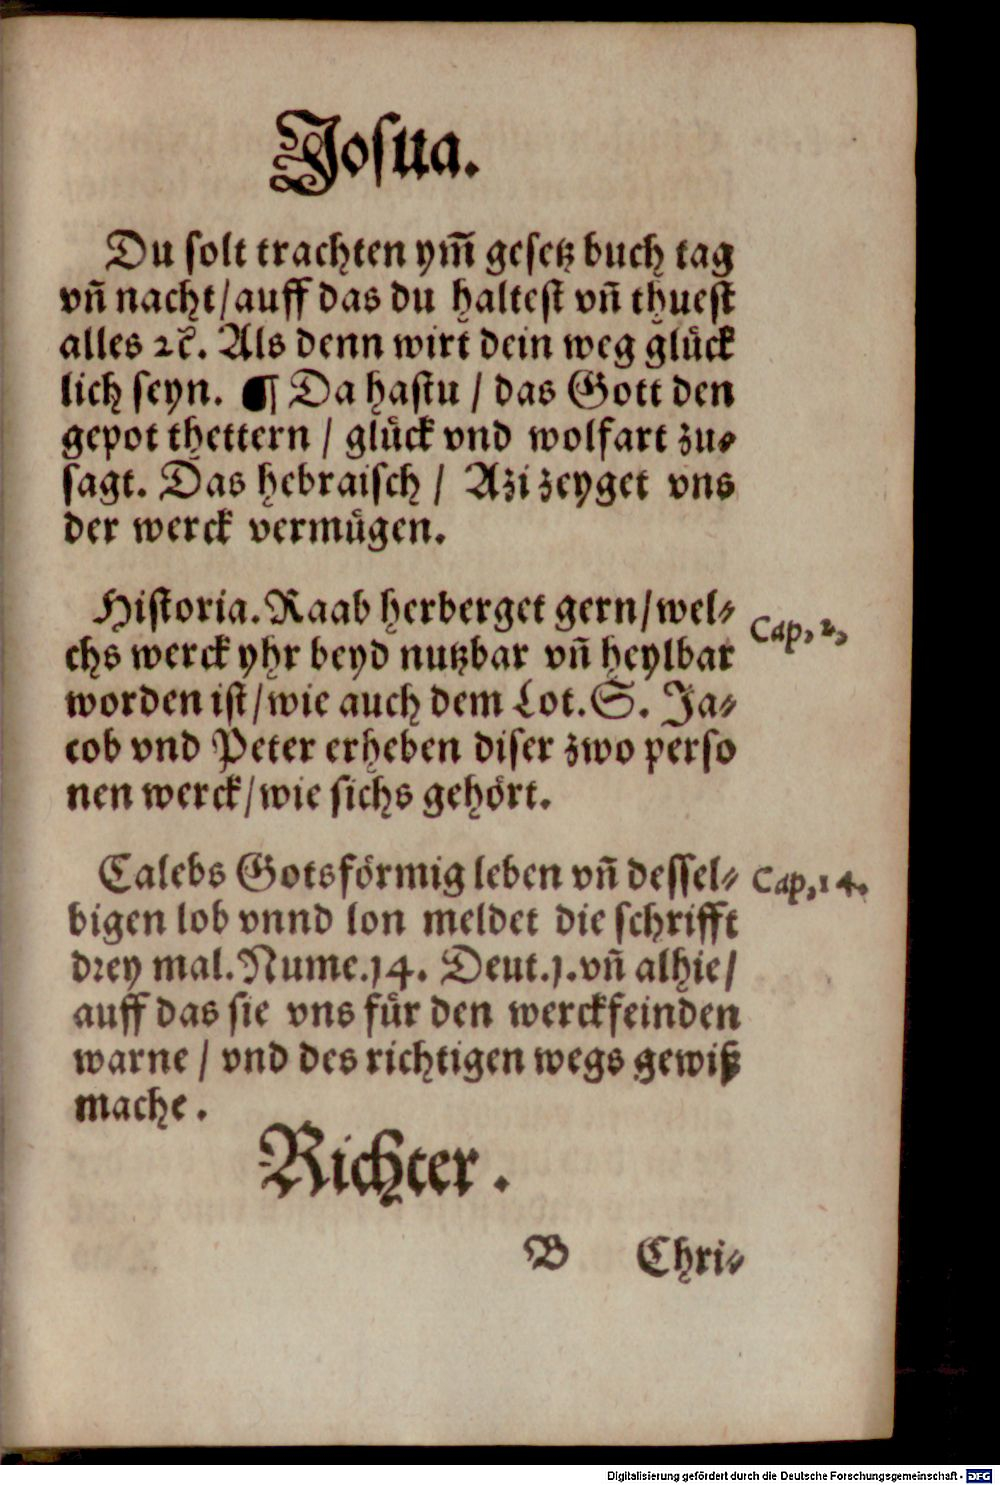 Josua.
Du solt trachten ym̄ gesetz buch tag
vn̄ nacht/auff das du haltest vn̄ thuest
alles ⁊c̄. Als denn wirt dein weg glück
lich seyn. ¶ Da hastu / das Gott den
gepot thettern / glück vnd wolfart zu⸗
sagt. Das hebraisch / Azi zeyget vns
der werck vermügen.
Historia. Raab herberget gern/wel⸗
Cap, 2,
chs werck yhr beyd nutzbar vn̄ heylbar
worden ist/wie auch dem Lot. S. Ja⸗
cob vnd Peter erheben diser zwo perso
nen werck/wie sichs gehört.
Calebs Gotsförmig leben vn̄ dessel⸗
Cap, 14.
bigen lob vnnd lon meldet die schrifft
drey mal. Nume. 14. Deut. 1. vn̄ alhie/
auff das sie vns für den werckfeinden
warne / vnd des richtigen wegs gewiß
mache.
Richter.
B Chri⸗
Digitalisierung gefördert durch die Deutsche Forschungsgemeinschaft - DFG